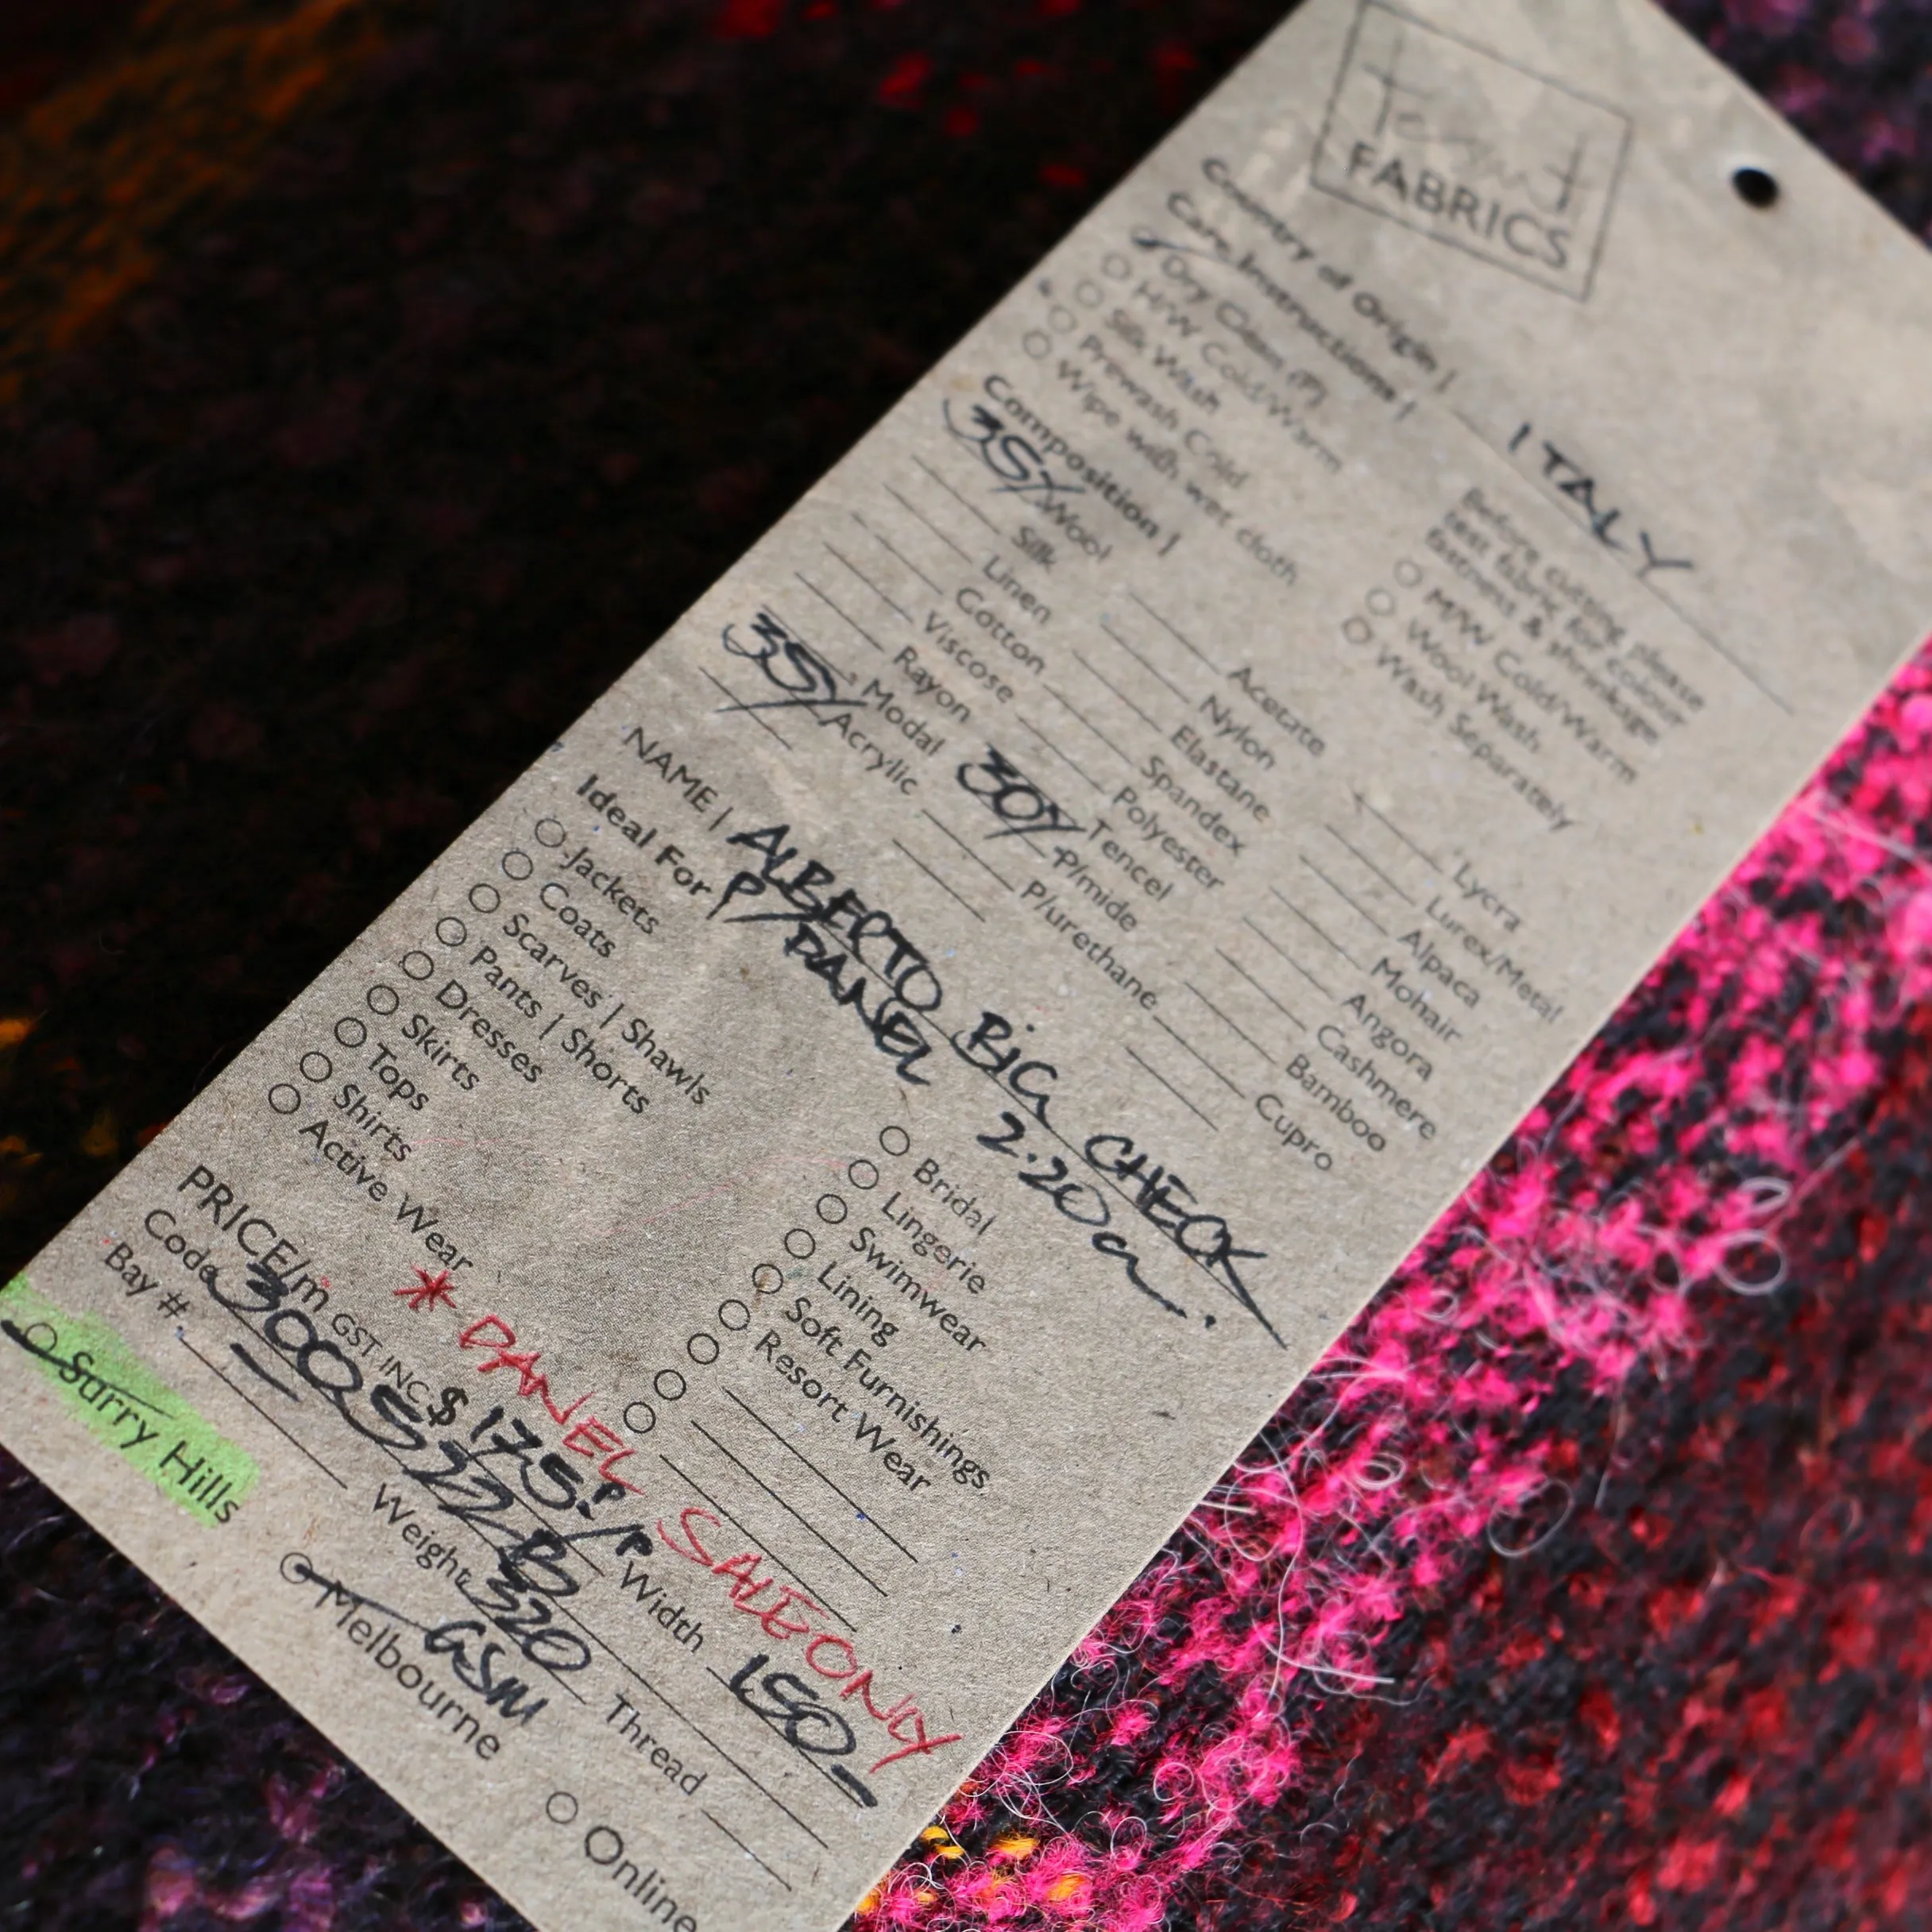 FABRICS
Country of Origin | ITALY
Care Instructions |
Dry Clean (P)
H/W Cold/Warm
Silk Wash
Prewash Cold
Wipe with wet cloth
Before cutting please
test fabric for colour
fastness & shrinkage
M/W Cold/Warm
Wool Wash
Wash Separately
Composition |
35% Wool
Silk
Linen
Cotton
Viscose
Rayon
Modal
35% Acrylic
Acetate
Nylon
Elastane
Spandex
Polyester
Tencel
30% P/mide
P/urethane
Lycra
Lurex/Metal
Alpaca
Mohair
Angora
Cashmere
Bamboo
Cupro
NAME | ALBERTO BIG CHECK
P/PANEL 2.20m.
Ideal For |
Jackets
Coats
Scarves | Shawls
Pants | Shorts
Dresses
Skirts
Tops
Shirts
Active Wear
Bridal
Lingerie
Swimwear
Lining
Soft Furnishings
Resort Wear
* PANEL SALE ONLY
PRICE/m GST INC $175.-/P Width 150
Code Weight 320 GSM Thread
Bay #
Surry Hills
Melbourne
Online